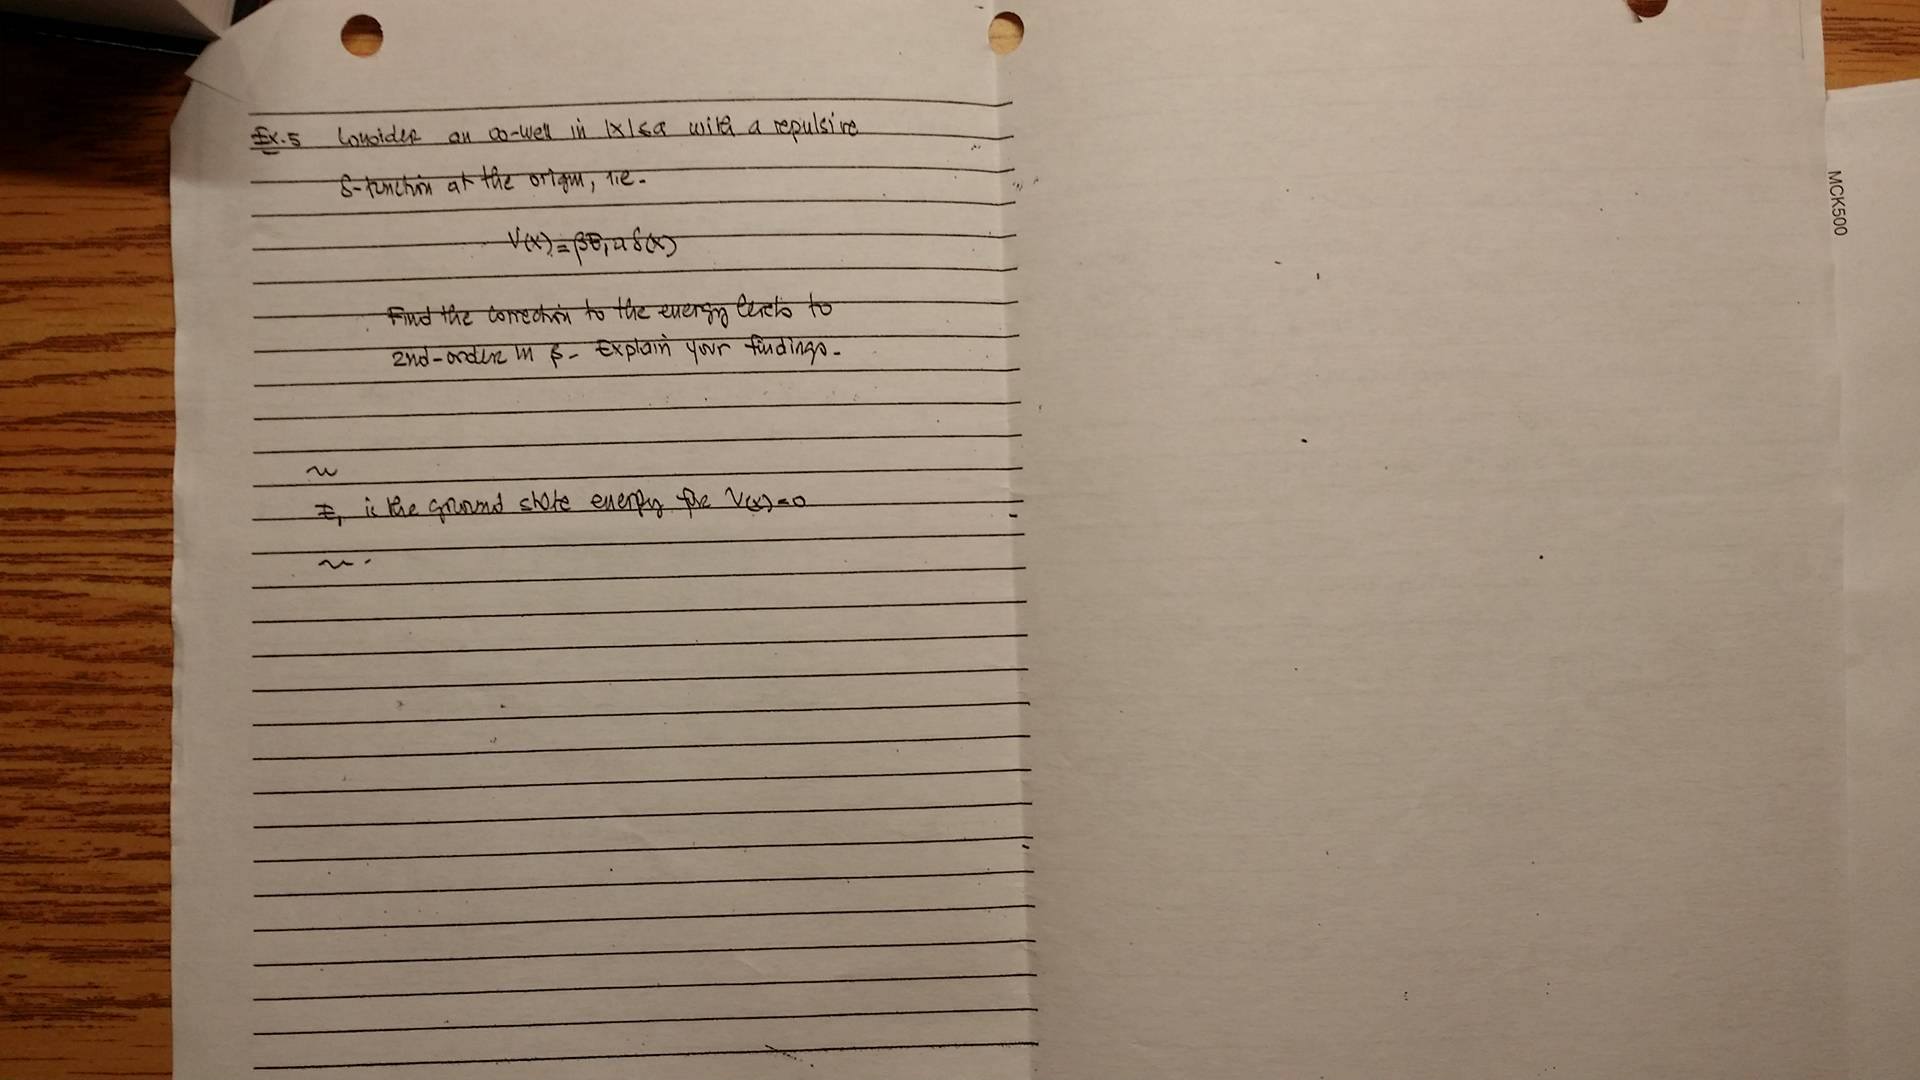 Ex.5 Consider an ∞-well in |x|≤a with a repulsive
δ-function at the origin, i.e.
V(x)=βE₁aδ(x)
Find the correction to the energy levels to
2nd-order in β. Explain your findings.
E₁ is the ground state energy for V(x)=0
MCK500